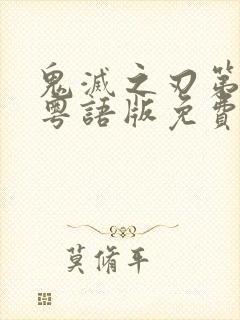 鬼滅之刃第
粵語版免費
莫脩平